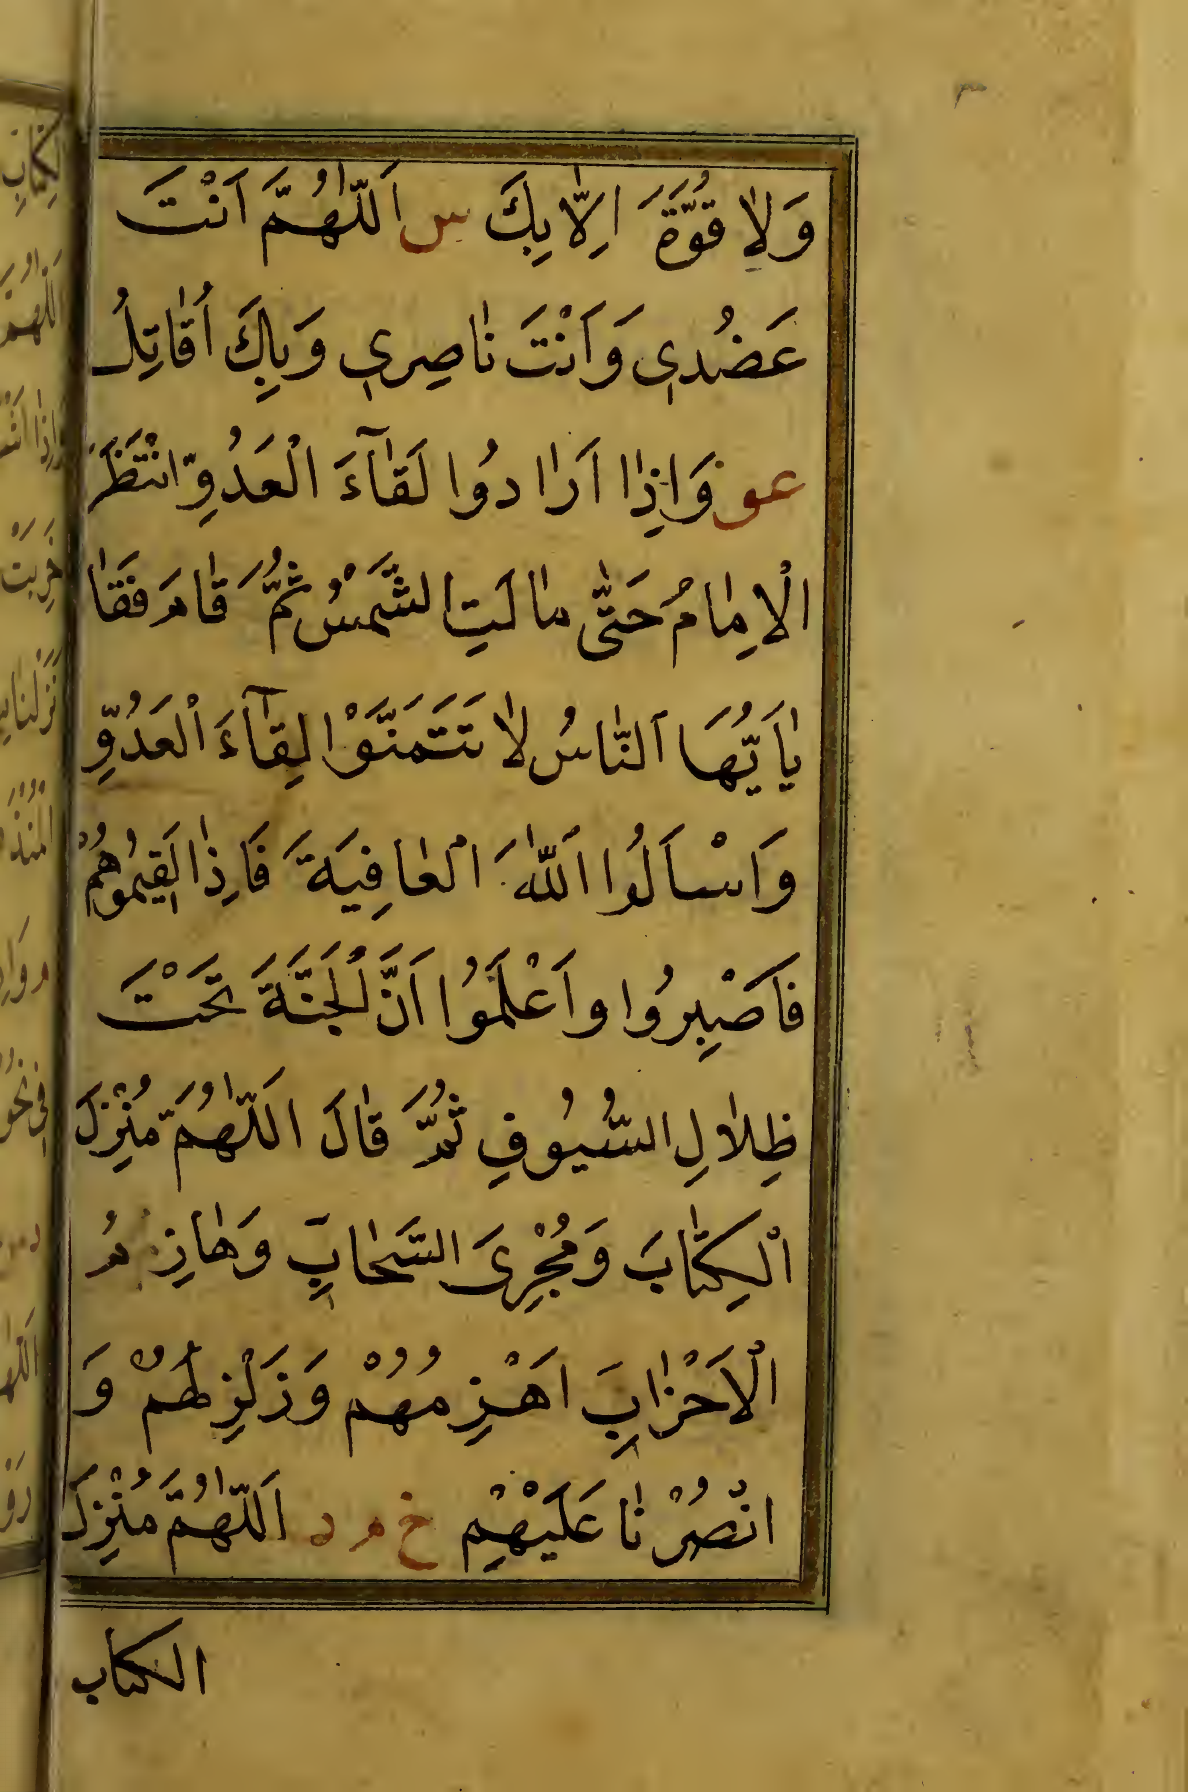 وَلَا قُوَّةَ اِلَّا بِكَ س اَللّٰهُمَّ اَنْتَ
عَضُدِي وَاَنْتَ نَاصِرِي وَبِكَ اُقَاتِلُ
عو وَاِذَا اَرَادُوا لَقَآءَ الْعَدُوِّ انْتَظَرَ
الْاِمَامُ حَتّٰى مَالَتِ الشَّمْسُ ثُمَّ قَامَ فَقَا
يٰاَيُّهَا النَّاسُ لَا تَتَمَنَّوْا لِقَآءَ الْعَدُوِّ
وَاسْاَلُوا اللّٰهَ الْعَافِيَةَ فَاِذَا لَقِيتُمُوهُمْ
فَاصْبِرُوا وَاعْلَمُوا اَنَّ الْجَنَّةَ تَحْتَ
ظِلَالِ السُّيُوفِ ثُمَّ قَالَ اللّٰهُمَّ مُنْزِلَ
الْكِتَابَ وَمُجْرِيَ السَّحَابِ وَهَازِمُ
الْاَحْزَابِ اهْزِمْهُمْ وَزَلْزِلْهُمْ وَ
انْصُرْنَا عَلَيْهِمْ خ م د اَللّٰهُمَّ مُنْزِلَ
الكتاب